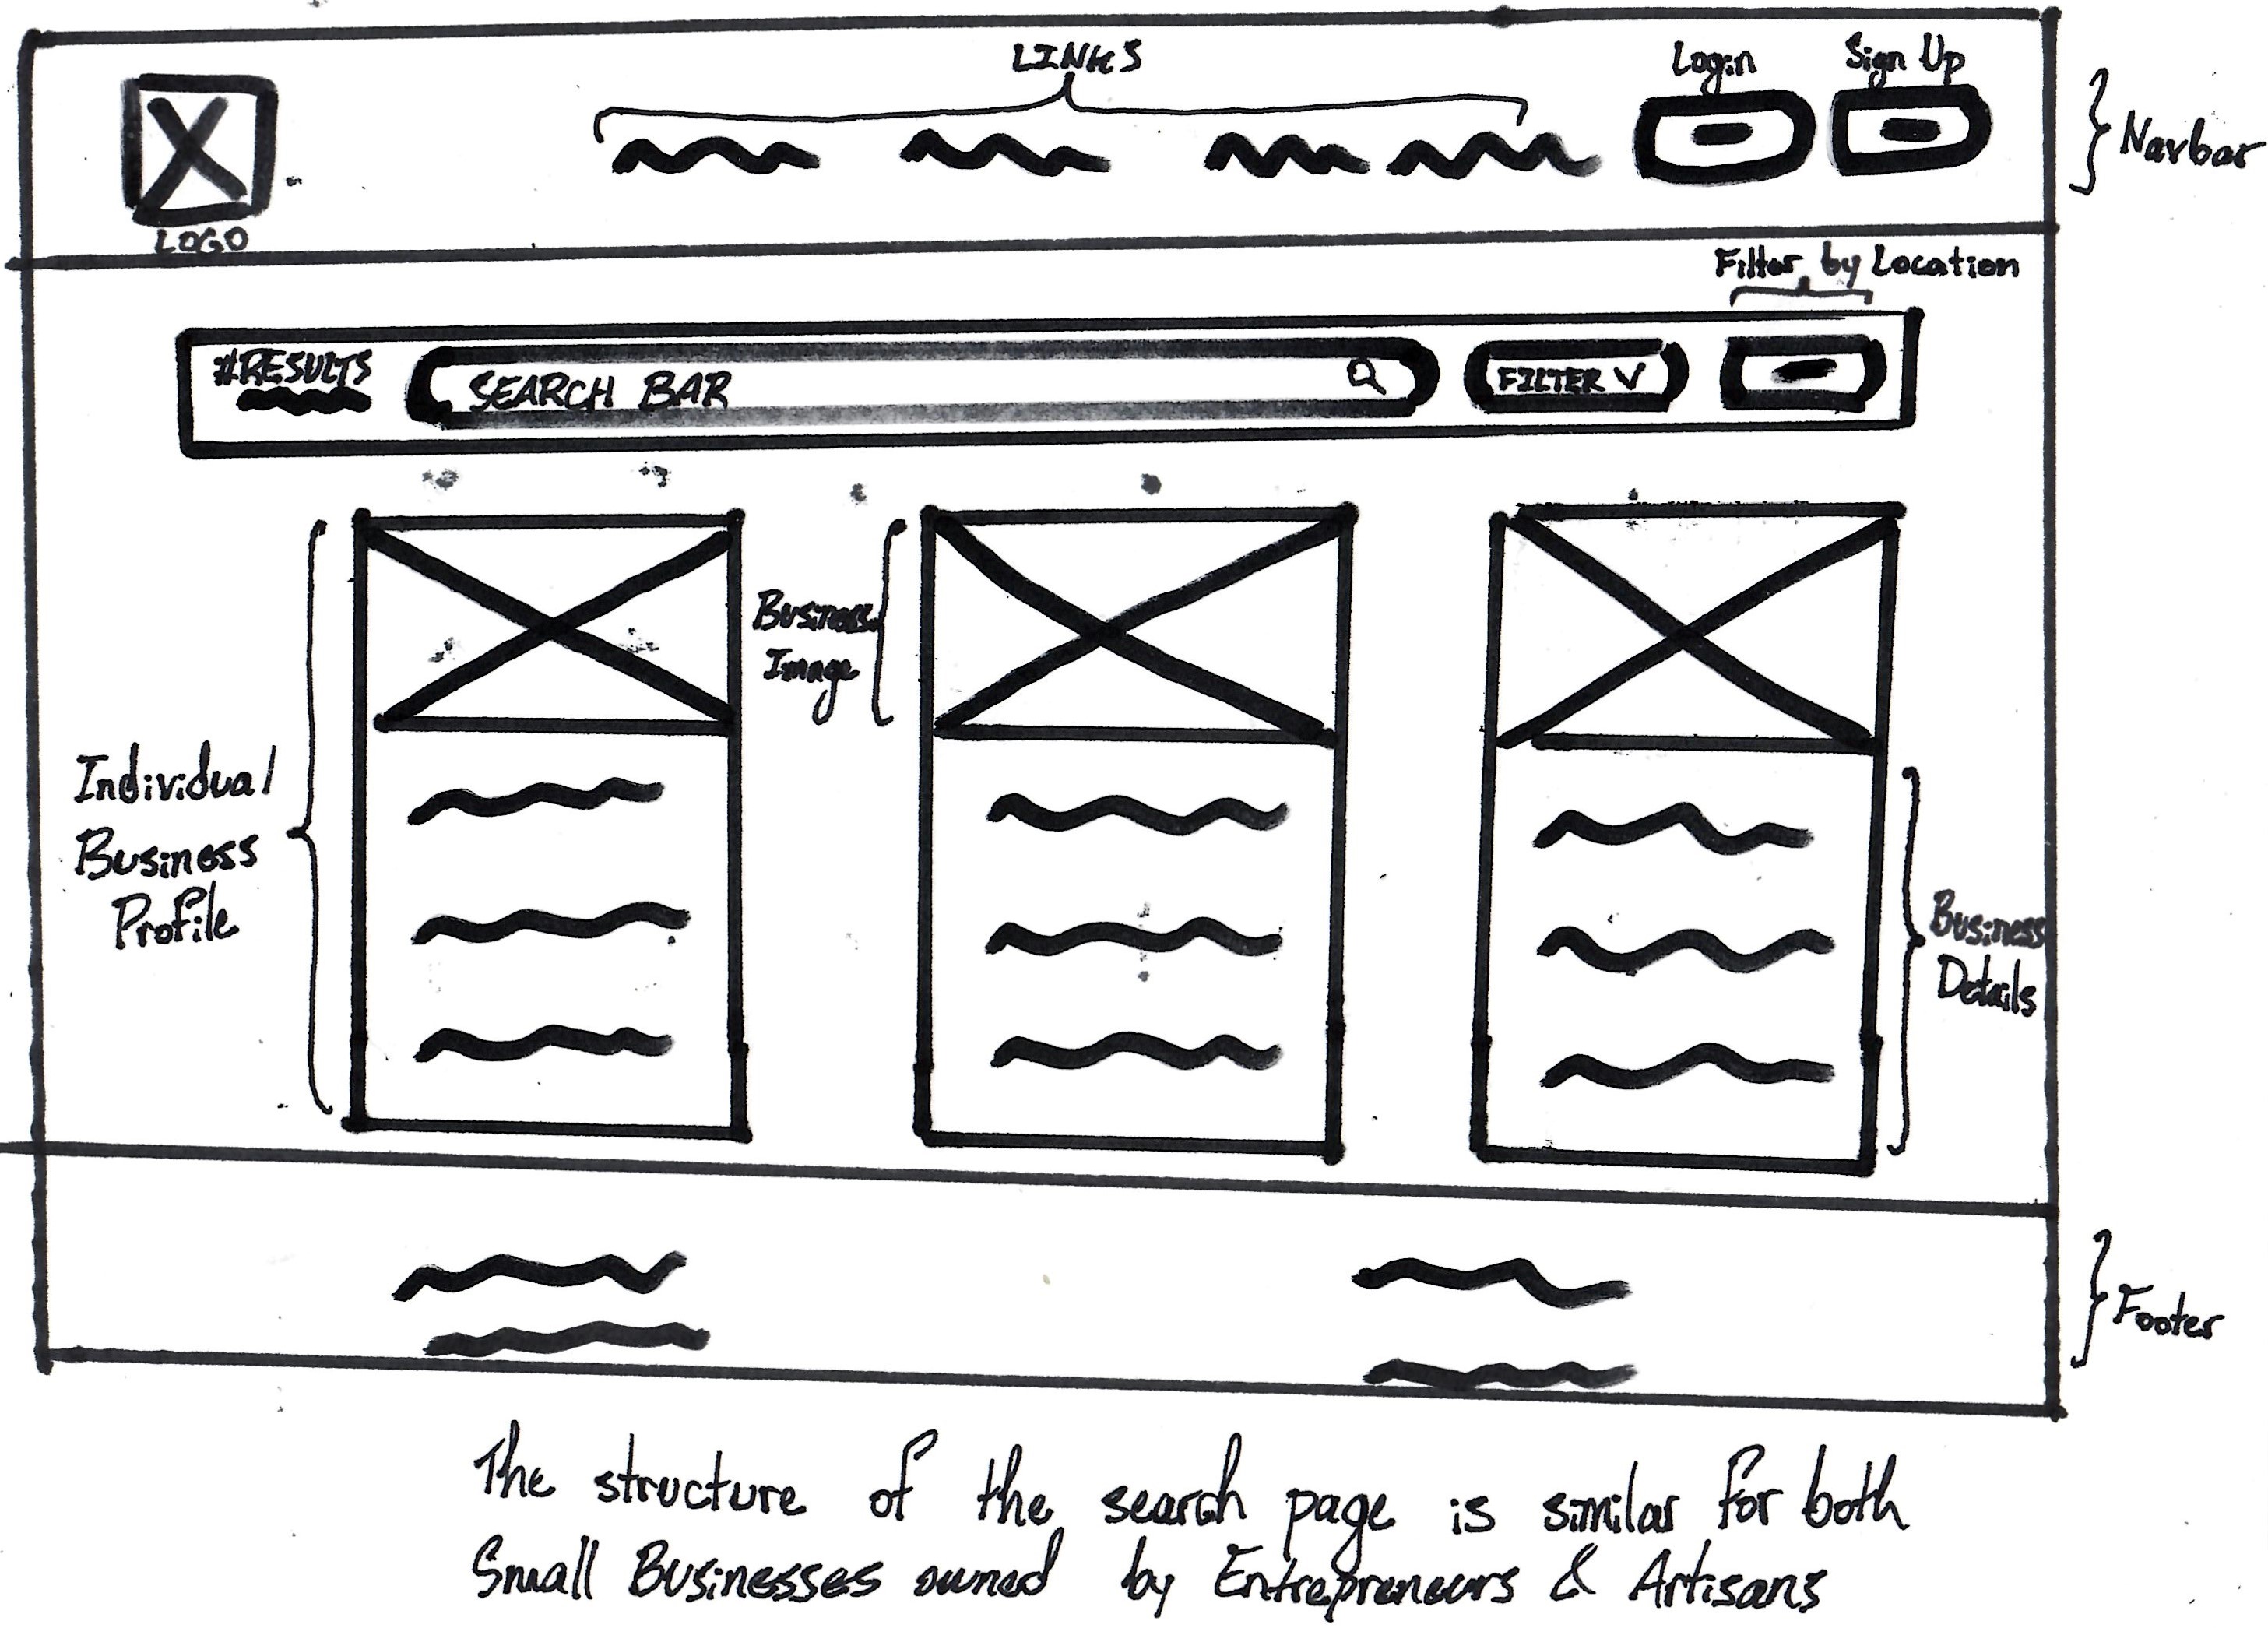 LINKS
Login
Sign Up
Navbar
LOGO
Filter by Location
#RESULTS
SEARCH BAR
FILTER V
Business
Image
Individual
Business
Profile
Business
Details
Footer
The structure of the search page is similar for both
Small Businesses owned by Entrepreneurs & Artisans